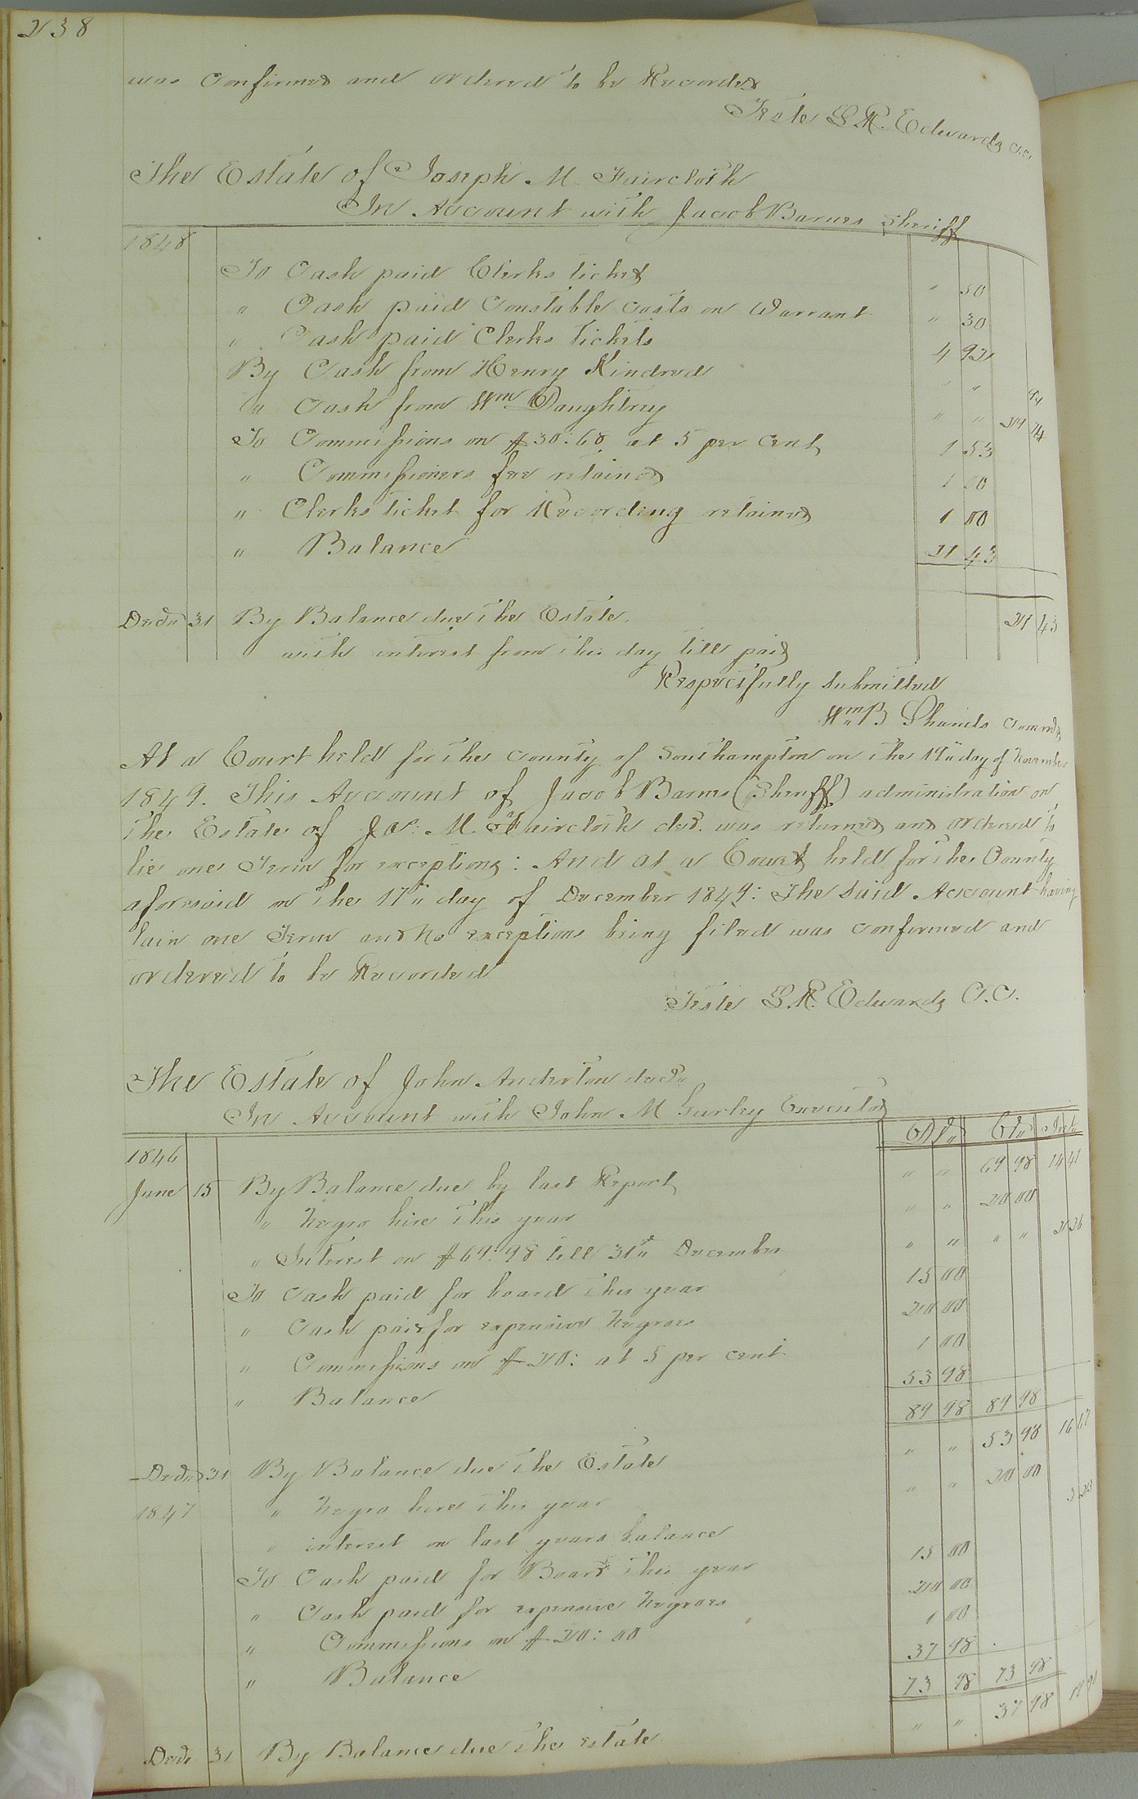 238
was confirmed and ordered to be Recorded
Teste L. R. Edwards C.C.
The Estate of Joseph M. Faircloth
In Account with Jacob Barnes Sheriff
1848
To Cash paid Clerks ticket " 50
" Cash paid Constable costs on Warrant " 30
" Cash paid Clerks Tickets 4 92
By Cash from Henry Kindred " "
" Cash from Wm Daughtrey " "
To Commissions on $30.68 at 5 per cent 1 53
" Commissioners fee retained 1 00
" Clerks ticket for Recording retained 1 00
" Balance 21 43
Decr 31 By Balance due the Estate 21 43
with interest from this day till paid
Respectfully Submitted
Wm B Shands
At a Court held for the County of Southampton on the 19" day of November
1849. This Account of Jacob Barnes (Sheriff) administration on
the Estate of Jos: M. Faircloth decd. was returned and ordered to
lie one Term for exceptions: And at a Court held for the County
aforesaid on the 17" day of December 1849: The Said Account having
lain one Term and no exceptions being filed was confirmed and
ordered to be Recorded
Teste L. R. Edwards C.C.
The Estate of John Anderton decd
In Account with John M Gurley Executor
Dr Cr Int
1846
June 15 By Balance due by last Report " " 69 98 14 41
" Negro hire this year " " 20 00
" Interest on $69:98 till 31st December " " " " 2 26
To Cash paid for board this year 15 00
" Cash paid for expensive Negroes 20 00
" Commissions on $20: at 5 per cent 1 00
" Balance 53 98
89 98 89 98
Decr 31 By Balance due the Estate " " 53 98 16 67
1847 " Negro hire this year " " 20 00
" interest on last years balance
To Cash paid for Board this year 15 00
" Cash paid for expensive Negroes 20 00
" Commissions on $20:00 1 00
" Balance 37 98
73 98 73 98
Decr 31 By Balance due the estate " " 37 98